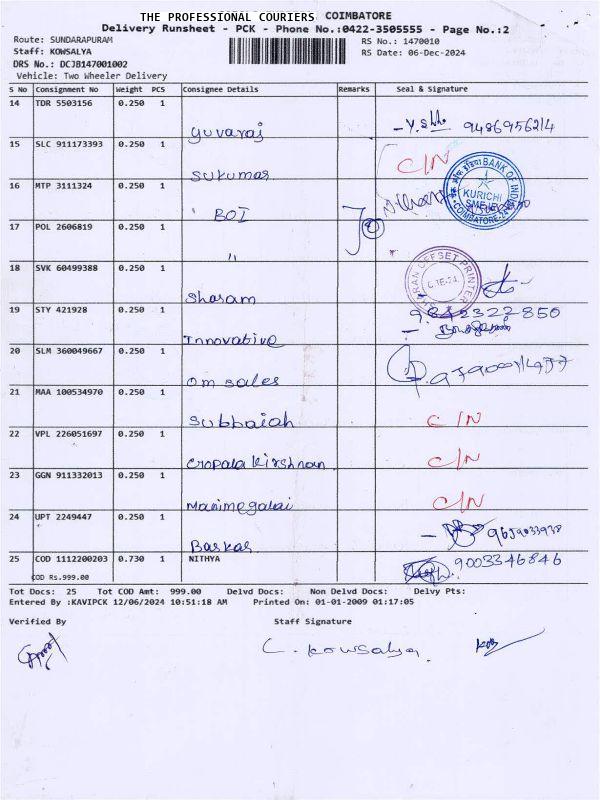 THE PROFESSIONAL COURIERS COIMBATORE
Delivery Runsheet - PCK - Phone No.:0422-3505555 - Page No.:2
Route: SUNDARAPURAM RS No.: 1470010
Staff: KOWSALYA RS Date: 06-Dec-2024
DRS No.: DCJB147001002
Vehicle: Two Wheeler Delivery
S No Consignment No Weight PCS Consignee Details Remarks Seal & Signature
14 TDR 5503156 0.250 1
Yuvaraj 9486956214
15 SLC 911173393 0.250 1
Sukumar C/N
16 MTP 3111324 0.250 1
" BOI
BANK OF INDIA
KURICHI
COIMBATORE
17 POL 2606819 0.250 1
"
18 SVK 60499388 0.250 1
Sharam
OFFSET PRINTER
19 STY 421928 0.250 1 9842322850
Innovative
20 SLM 360049667 0.250 1
Om sales
21 MAA 100534970 0.250 1
Subbaiah C/N
22 VPL 226051697 0.250 1
Gopala Kirshnan C/N
23 GGN 911332013 0.250 1
Manimegalai C/N
24 UPT 2249447 0.250 1
Baskar
25 COD 1112200203 0.730 1 NITHYA 9003346846
COD Rs.999.00
Tot Docs: 25 Tot COD Amt: 999.00 Delvd Docs: Non Delvd Docs: Delvy Pts:
Entered By :KAVIPCK 12/06/2024 10:51:18 AM Printed On: 01-01-2009 01:17:05
Verified By Staff Signature
C. Kowsalya